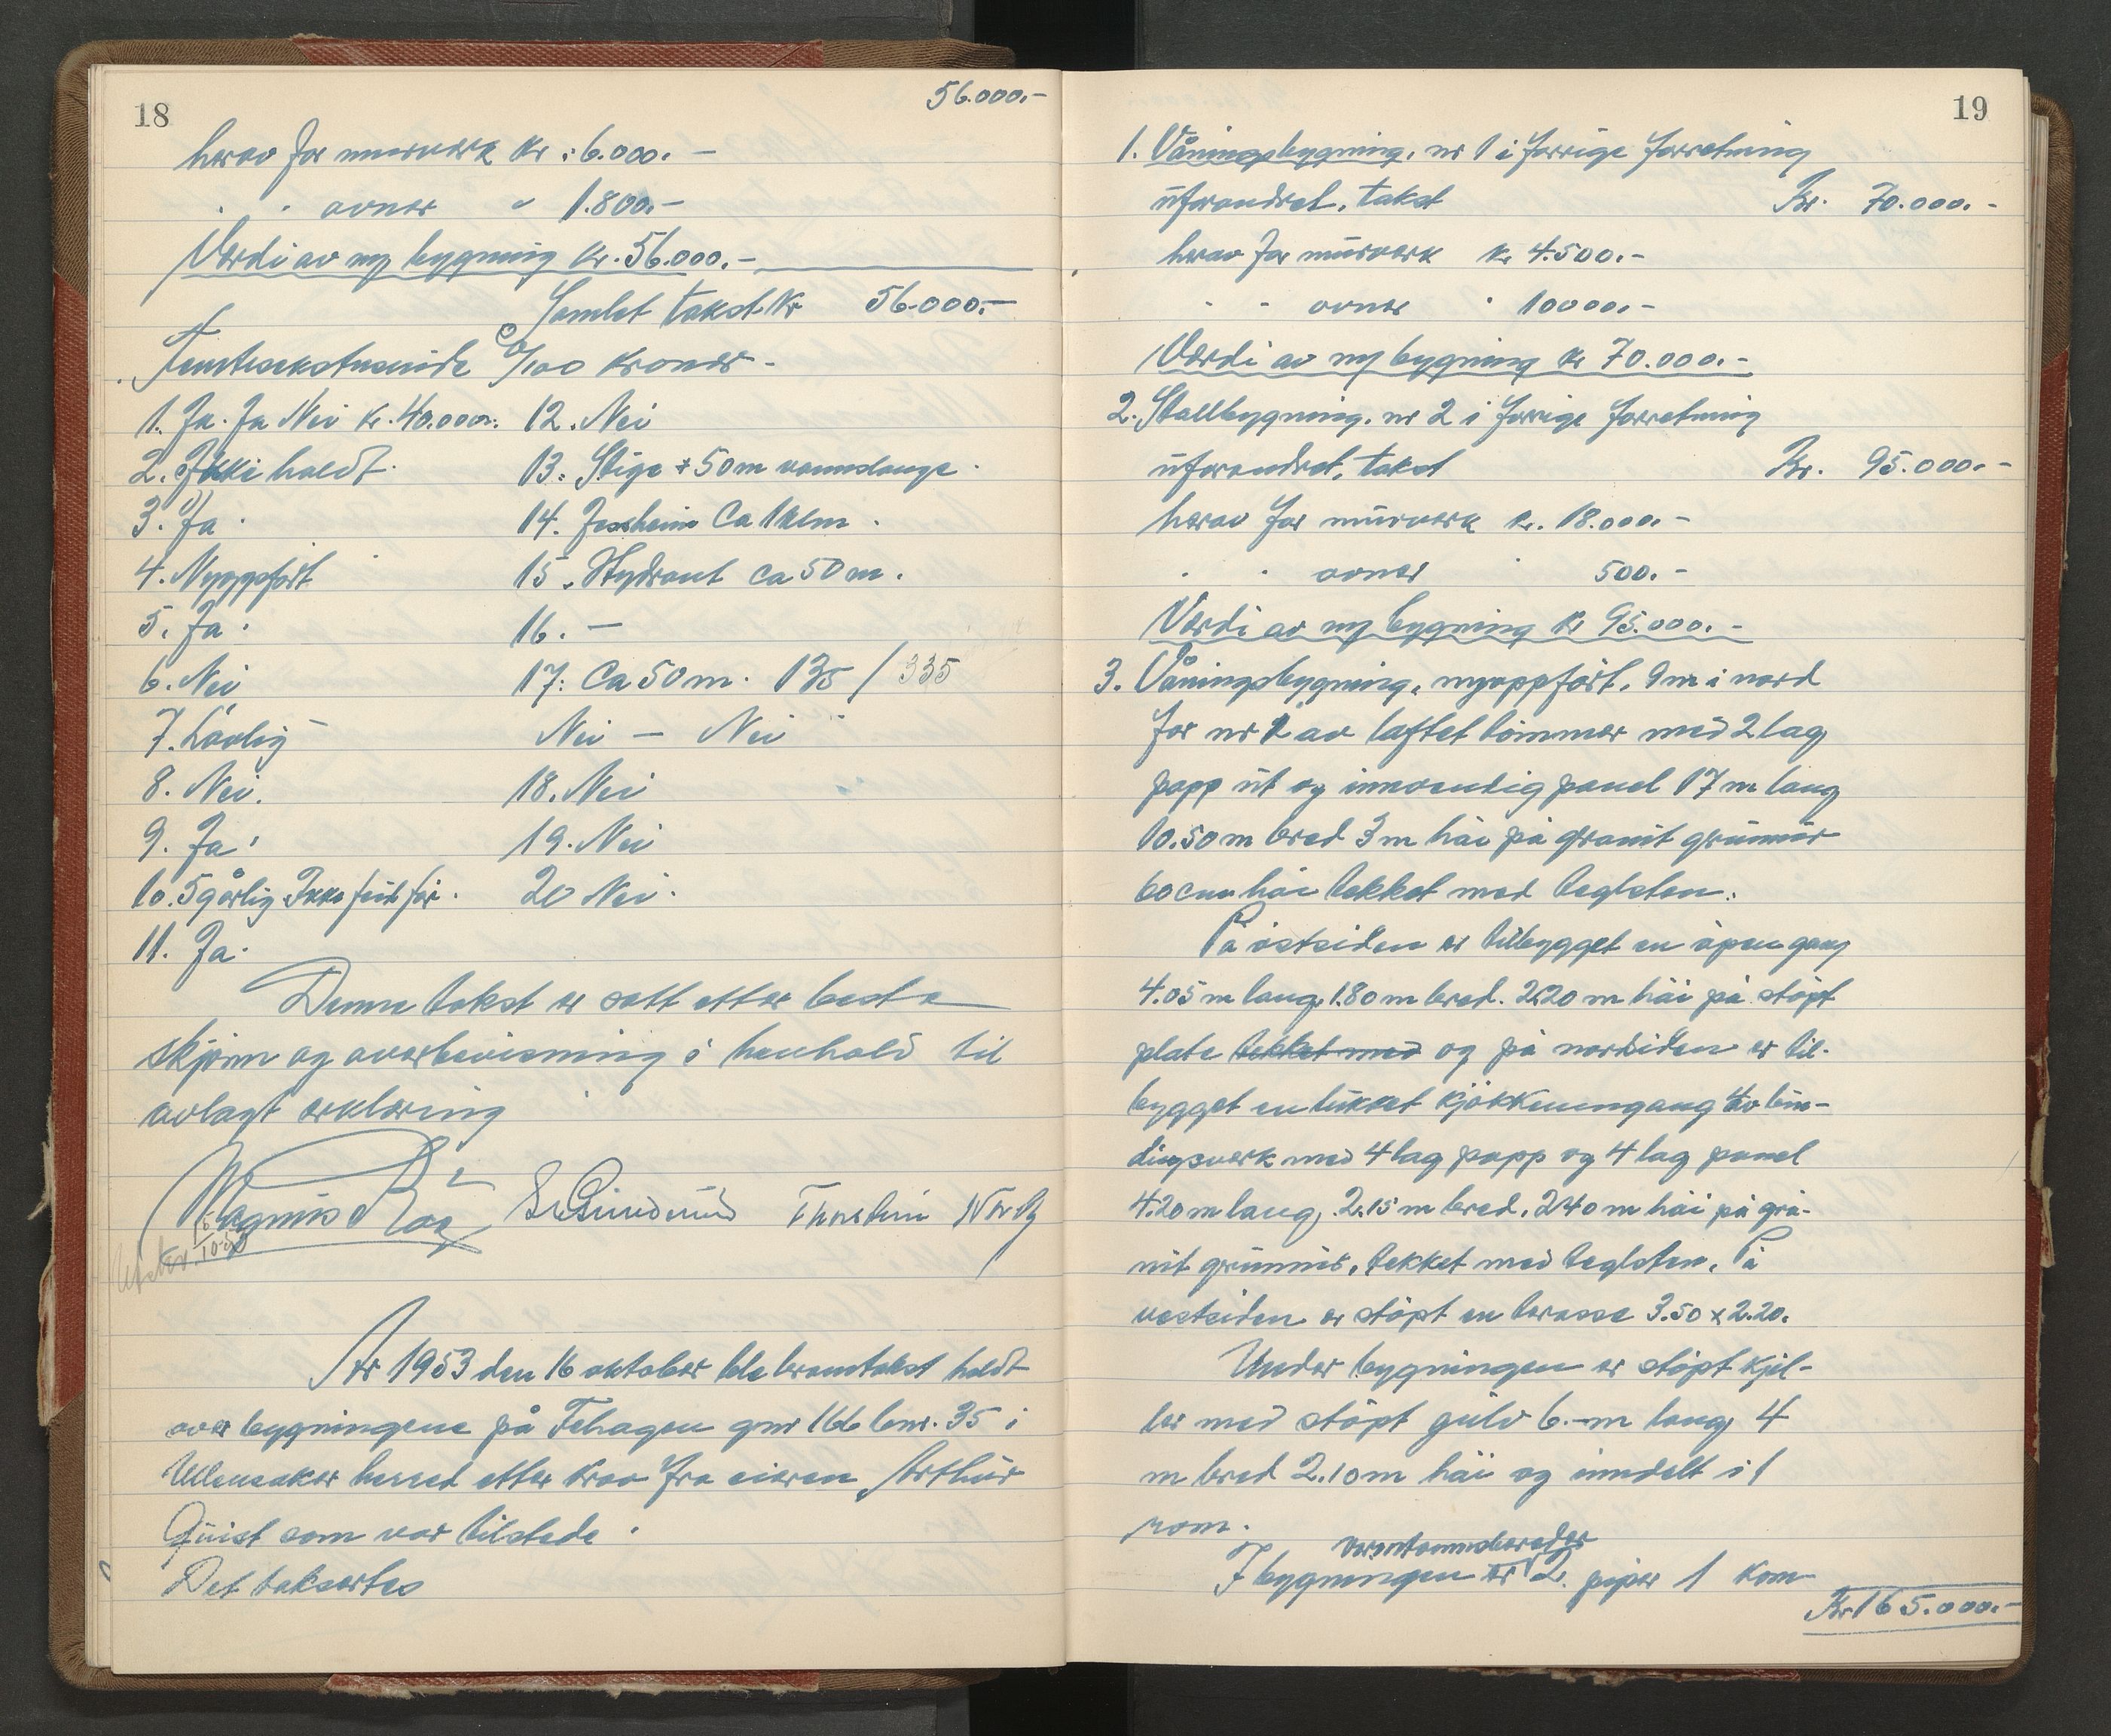 18
56.000.-
herav for murverk Kr. 6.000.-
" " ovner " 1.800.-
Verdi av ny bygning Kr. 56.000.-
Samlet takst Kr 56.000.-
Femtisekstusinde 00/100 Kroner.-
1. Ja. Ja Nei Kr. 40.000.- 12. Nei
2. Ikke holdt. 13. Stige + 50 m vannslange.
3. Ja. 14. Jessheim Ca 1 klm.
4. Nyoppført 15. Hydrant ca 50 m.
5. Ja. 16. —
6. Nei 17. Ca 50 m. 135 / 335
7. Lovlig Nei — Nei
8. Nei. 18. Nei
9. Ja. 19. Nei
10. 5 gårlig Ikke feid før. 20 Nei.
11. Ja.
Denne takst er satt etter beste
skjønn og overbevisning i henhold til
avlagt erklæring
Magnus
Thorstein
16/10-53
År 1953 den 16 oktober ble branntakst holdt
over bygningene på Fehagen gnr 166 bnr. 35 i
Ullensaker herred etter krav fra eieren Arthur
Quist som var tilstede.
Det taksertes
19
1. Våningsbygning, nr 1 i forrige forretning
uforandret, takst Kr. 70.000.-
herav for murverk Kr 4.500.-
" " ovner " 10000.-
Verdi av ny bygning Kr 70.000.-
2. Stallbygning, nr 2 i forrige forretning
uforandret, takst Kr. 95.000.-
herav for murverk Kr. 18.000.-
" " ovner " 500.-
Verdi av ny bygning Kr 95.000.-
3. Våningsbygning, nyoppført, 9 m i nord
for nr 1 av laftet tømmer med 2 lag
papp ut og innvendig panel 17 m lang
10.50 m bred 3 m høi på granit grunnmur
60 cm høi tekket med teglsten.
På østsiden er tilbygget en åpen gang
4.05 m lang, 1.80 m bred. 2.20 m høi på støpt
plate tekket med og på nordsiden er til-
bygget en lukket kjøkkeninngang av bin-
dingsverk med 4 lag papp og 4 lag panel
4.20 m lang, 2.15 m bred, 2.40 m høi på gra-
nit grunnmur, tekket med teglsten. På
vestsiden er støpt en terasse 3.50 x 2.20.
Under bygningen er støpt kjel-
ler med støpt gulv 6.- m lang 4
m bred 2.10 m høi og inndelt i 1
rom.
varmtvannsbereder
I bygningen er 2 piper 1 kom-
Kr 165.000.-